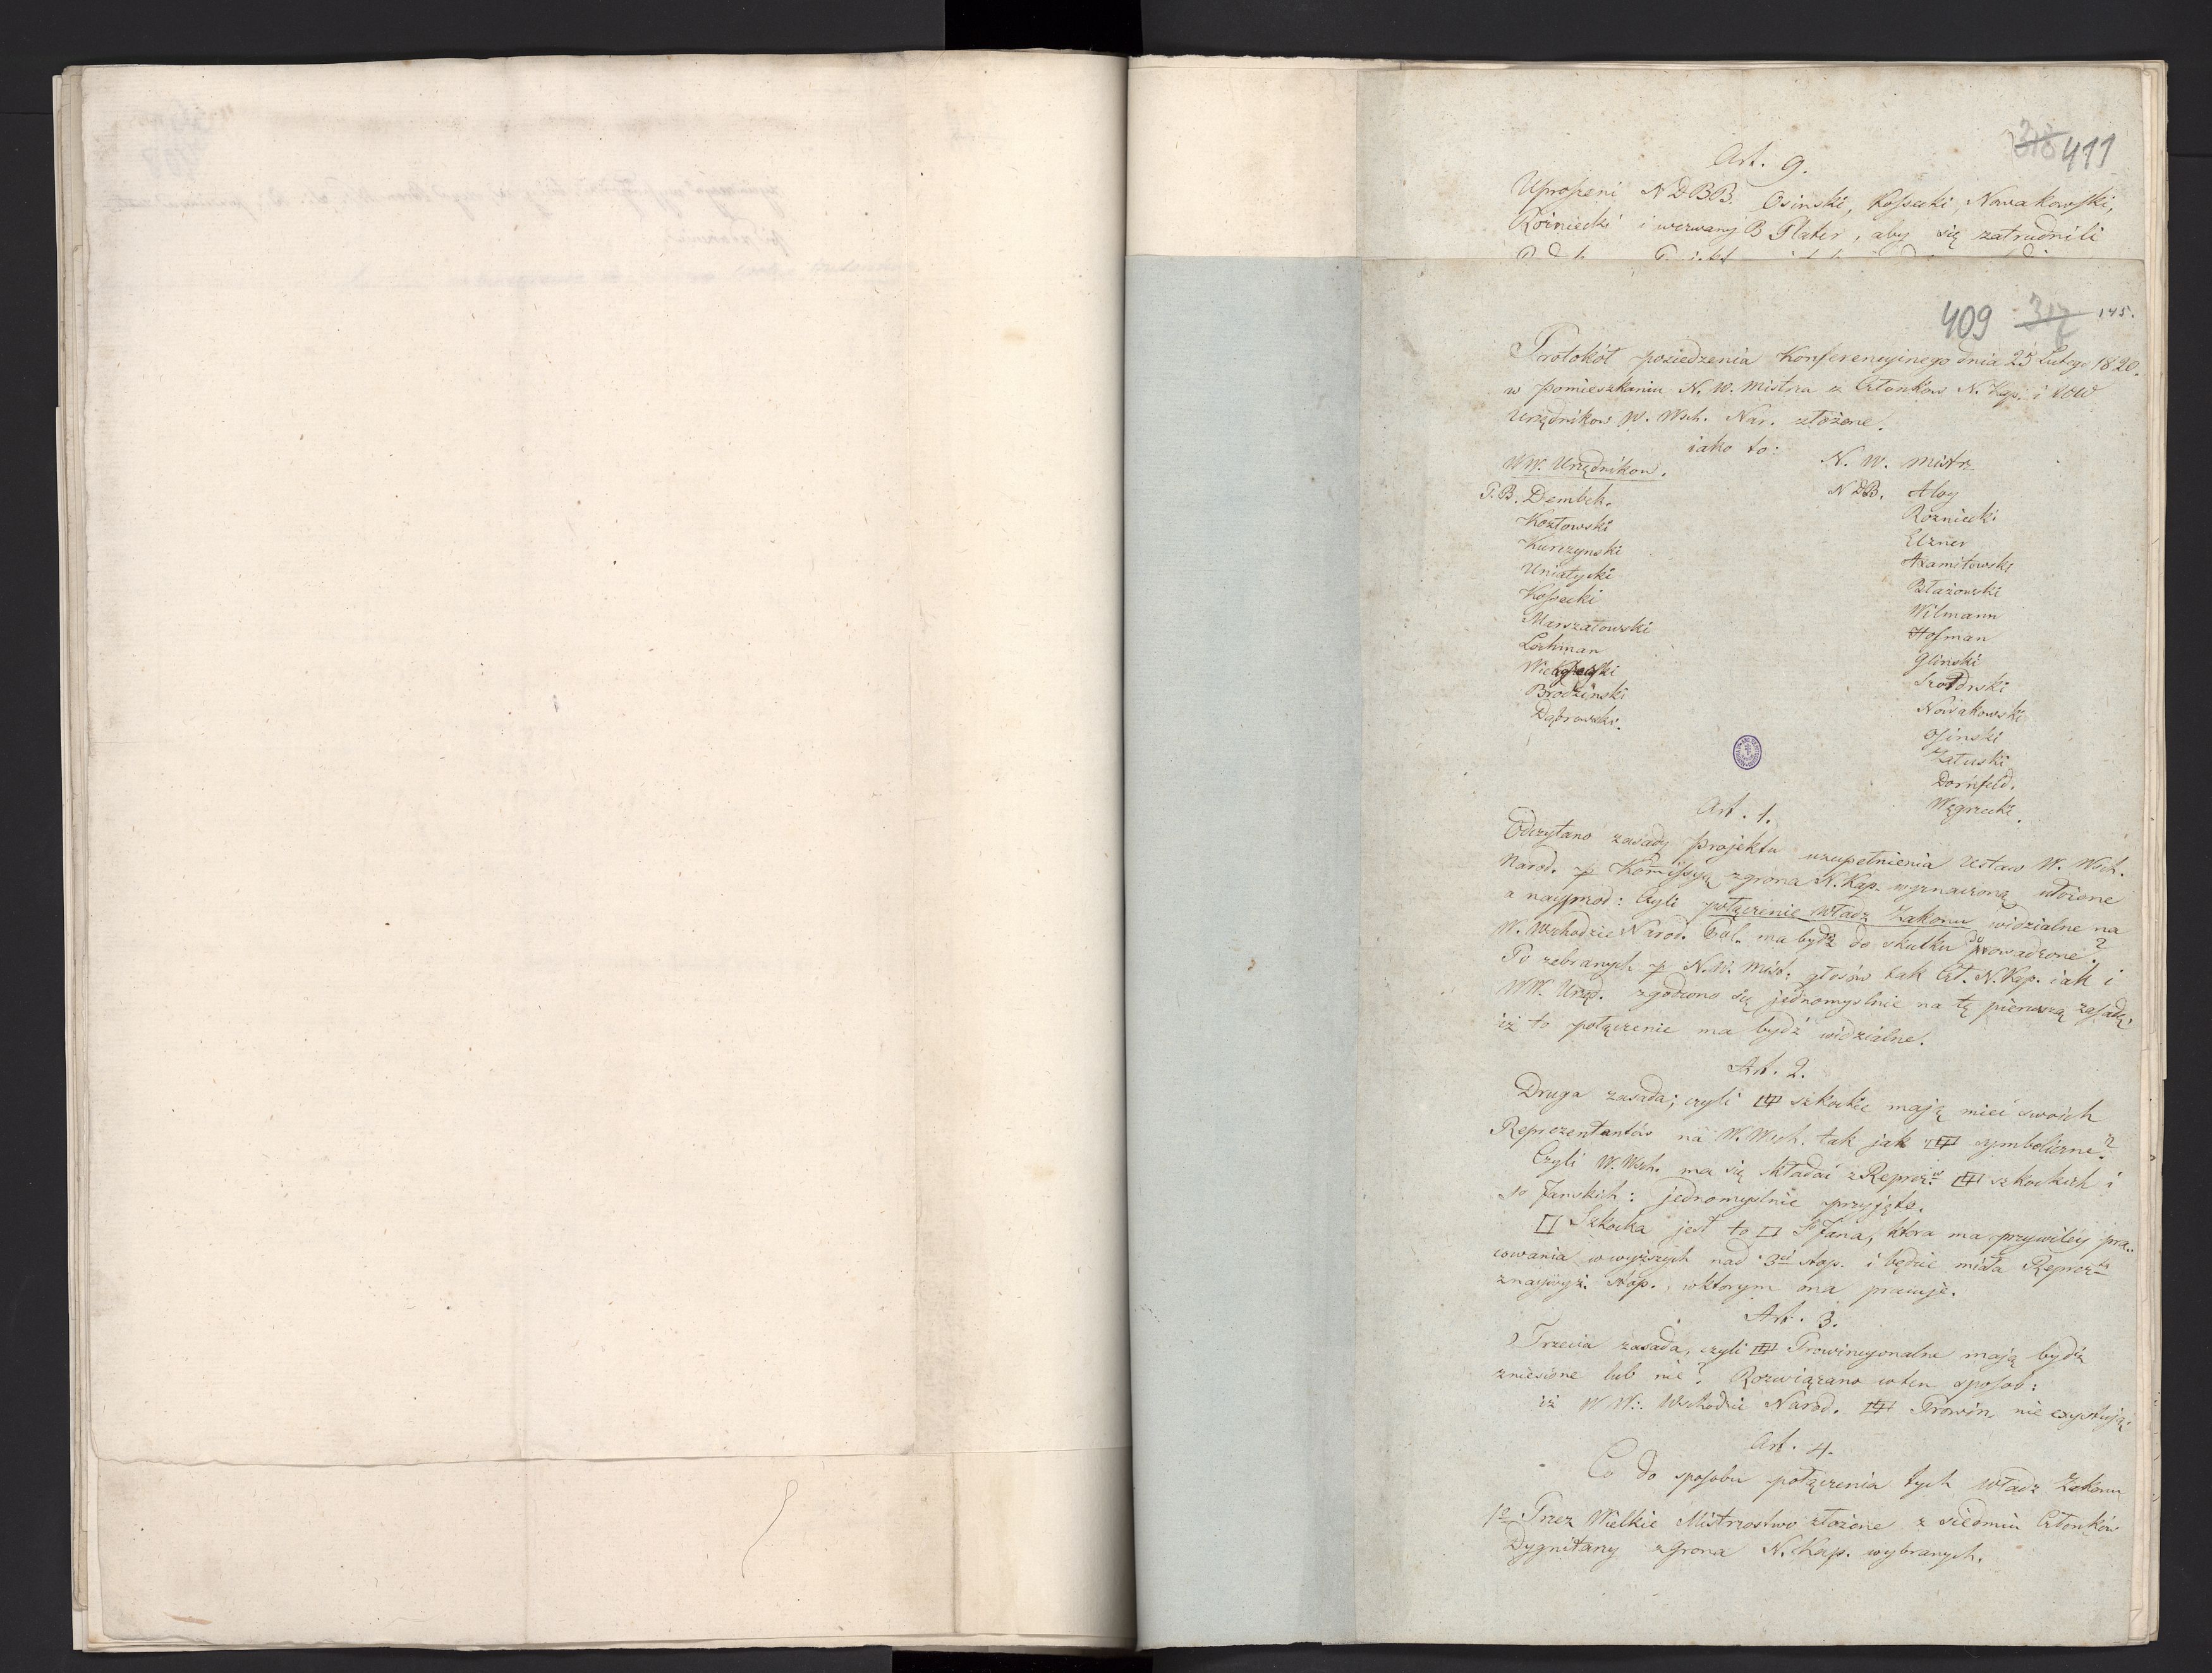 318 411
Art. 9.
Uproszeni NDBB. Osinski, Kossecki, Nowakowski,
Rożniecki i wezwany B Plater, aby się zatrudnili
409 317 145.
Protokół posiedzenia Konferencyinego dnia 25 Lutego 1820.
w pomieszkaniu N. W. Mistrza z Członków N. Kap. i WW
Urzędnikow W. Wsch. Nar. złożone.
iako to:
WW. Urzędnikow.
P.B. Dembek.
Kozłowski
Kurczynski
Uniatycki
Kossecki
Marszałowski
Lechman
Brodzinski
Dąbrowski.
N. W. Mistrz
NDB. Aloy
Rozniecki
Elzner
Axamitowski
Błażowski
Wilmann
Hofman
Glinski
Nowakowski
Osinski
Załuski
Dornfeld.
Węgrzecki.
Art. 1.
Odczytano zasady projektu uzupełnienia Ustaw W. Wsch.
Narod. p Komissyą zgrona N. Kap. wyznaczoną ułożone
a nayprzod: Czyli połączenie władz Zakonu widzialne na
W. Wschodzie Narod. Pol. ma bydź do skutku prowadzone?
Po zebranych p N. W. Mist. głosów tak Czł. N. Kap. iak i
WW. Urzęd. zgodzono się jednomyslnie na tę pierwszą zasadę,
iż to połączenie ma bydź widzialne.
Art. 2.
Druga zasada; czyli szkockie mają mieć swoich
Reprezentantów na W. Wsch. tak jak symboliczne?
Czyli W. Wsch. ma się składać z Reprez. szkockich i
So Jańskich: jednomyslnie przyjęte.
Szkocka jest to So Jana, która ma przywiley pra..
cowania w wyższych nad 3ci stop. i będzie miała Reprez.
znaywyż. Stop., wktorym ona pracuje.
Art. 3.
Trzecia zasada, czyli Prowincyonalne mają bydź
zniesione lub nie? Rozwiązano wten sposob:
iż W W. Wschodzie Narod. Prowin. nie exystują.
Art. 4.
Co do sposobu połączenia tych władz Zakonu
1e Przez Wielkie Mistrzostwo złożone z siedmiu Członków
Dygnitarzy zgrona N. Kap. wybranych.